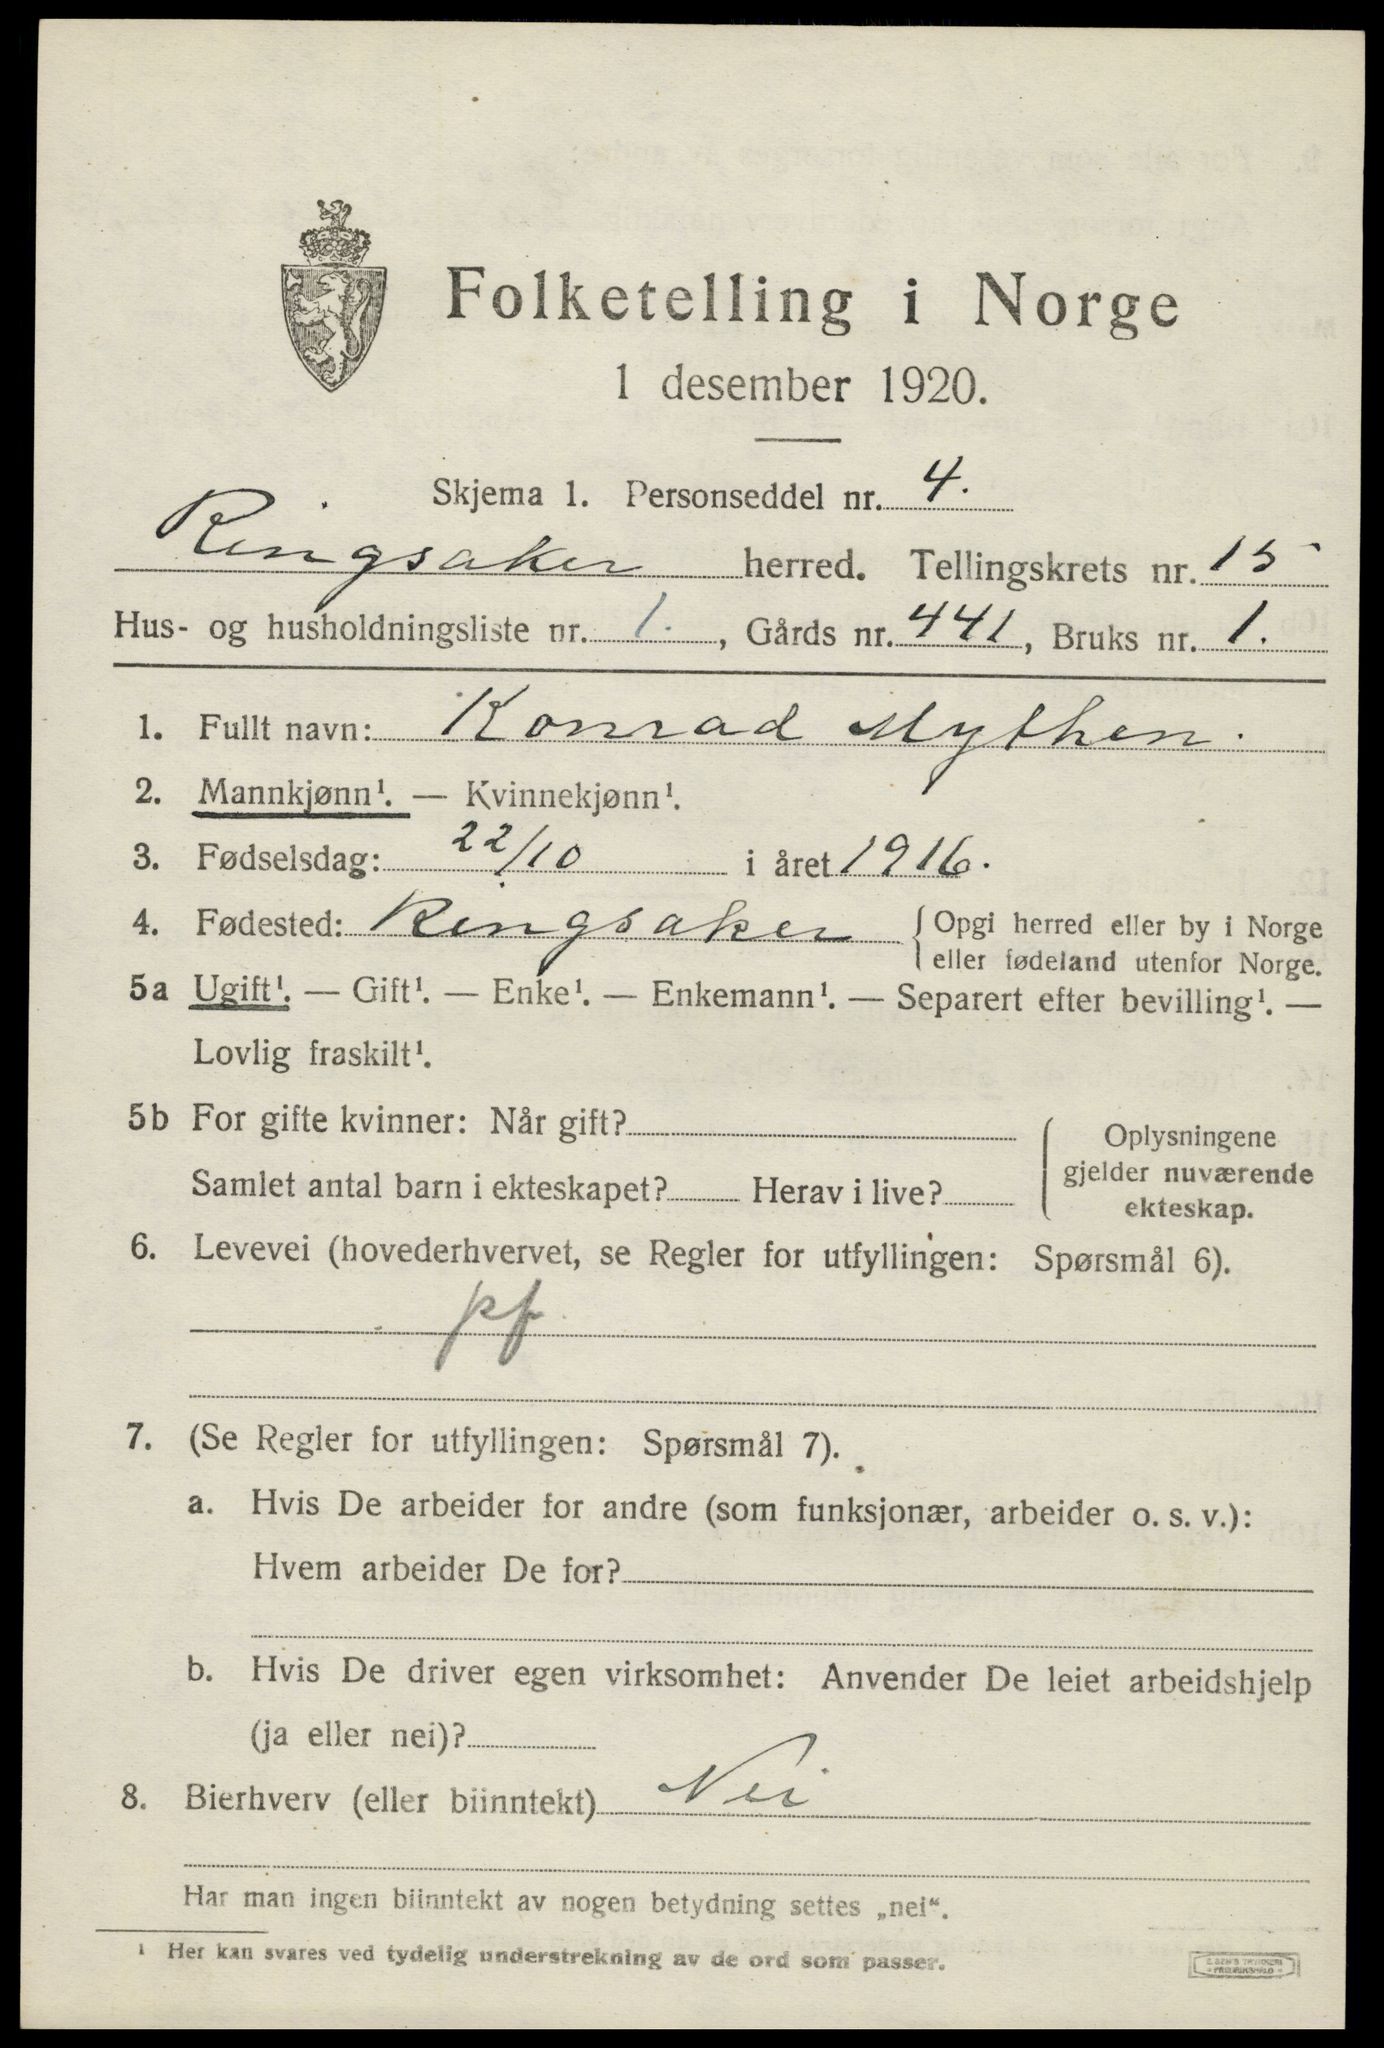 Folketelling i Norge
1 desember 1920.
Skjema 1. Personseddel nr. 4.
Ringsaker herred. Tellingskrets nr. 15
Hus- og husholdningsliste nr. 1., Gårds nr. 441, Bruks nr. 1.
1. Fullt navn: Konrad Mythen.
2. Mannkjønn¹. — Kvinnekjønn¹.
3. Fødselsdag: 22/10 i året 1916.
4. Fødested: Ringsaker {Opgi herred eller by i Norge
eller fødeland utenfor Norge.
5a Ugift¹. — Gift¹. — Enke¹. — Enkemann¹. — Separert efter bevilling¹. —
Lovlig fraskilt¹.
5b For gifte kvinner: Når gift?
Samlet antal barn i ekteskapet? Herav i live?
Oplysningene
gjelder nuværende
ekteskap.
6. Levevei (hovederhvervet, se Regler for utfyllingen: Spørsmål 6).
pf
7. (Se Regler for utfyllingen: Spørsmål 7).
a. Hvis De arbeider for andre (som funksjonær, arbeider o. s. v.):
Hvem arbeider De for?
b. Hvis De driver egen virksomhet: Anvender De leiet arbeidshjelp
(ja eller nei)?
8. Bierhverv (eller biinntekt) Nei
Har man ingen biinntekt av nogen betydning settes „nei“.
¹ Her kan svares ved tydelig understrekning av de ord som passer.